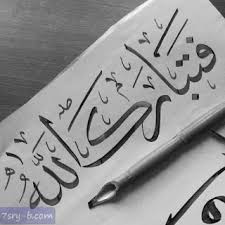 فتبارك الله
7sry-b.com